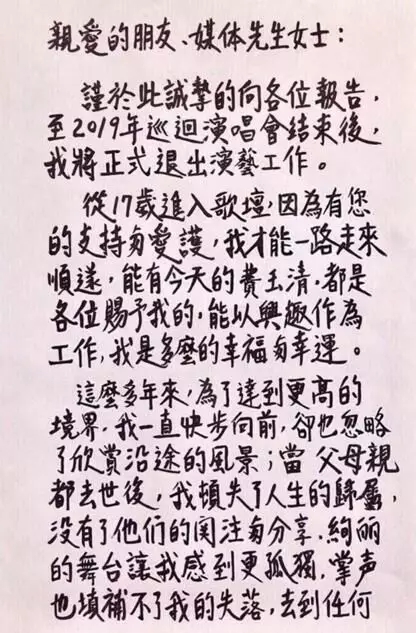 親愛的朋友、媒体先生女士：
謹於此誠摯的向各位報告，
至2019年巡迴演唱會結束後，
我將正式退出演藝工作。
從17歲進入歌壇，因為有您
的支持与愛護，我才能一路走來
順遂，能有今天的費玉清，都是
各位賜予我的，能以興趣作為
工作，我是多麼的幸福与幸運。
這麼多年來，為了達到更高的
境界，我一直快步向前，卻也忽略
了欣賞沿途的風景；當父母親
都去世後，我頓失了人生的歸屬，
没有了他們的関注与分享，絢丽
的舞台讓我感到更孤獨，掌声
也填補不了我的失落，去到任何